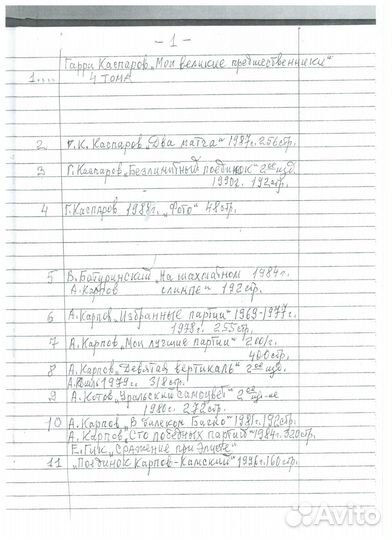 - 1 -
Гарри Каспаров „Мои великие предшественники“
1.... 4 тома
2 Г.К. Каспаров „Два матча“ 1987г. 256стр.
3 Г. Каспаров „Безлимитный поединок“ 2ое изд.
1990г. 192стр.
4 Г. Каспаров 1988г. „Фото“ 48стр.
5 В. Батуринский „На шахматном 1984г.
А. Карпов олимпе“ 192стр.
6 А. Карпов „Избранные партии“ 1969-1977г.
1978г. 255стр.
7 А. Карпов „Мои лучшие партии“ 2001г.
400стр.
8 А. Карпов „Девятая вертикаль“ 2ое изд.
А. Рошаль 1979г. 318стр.
9 А. Котов „Уральский самоцвет“ 2ое
1980г. 272стр.
10 А. Карпов „В далёком Багио“ 1981г. 192стр.
А. Карпов „Сто победных партий“ 1984г. 320стр.
Е. Гик „Сражение при Элисте“
11 „Поединок Карпов-Камский“ 1996г. 160стр.
Avito